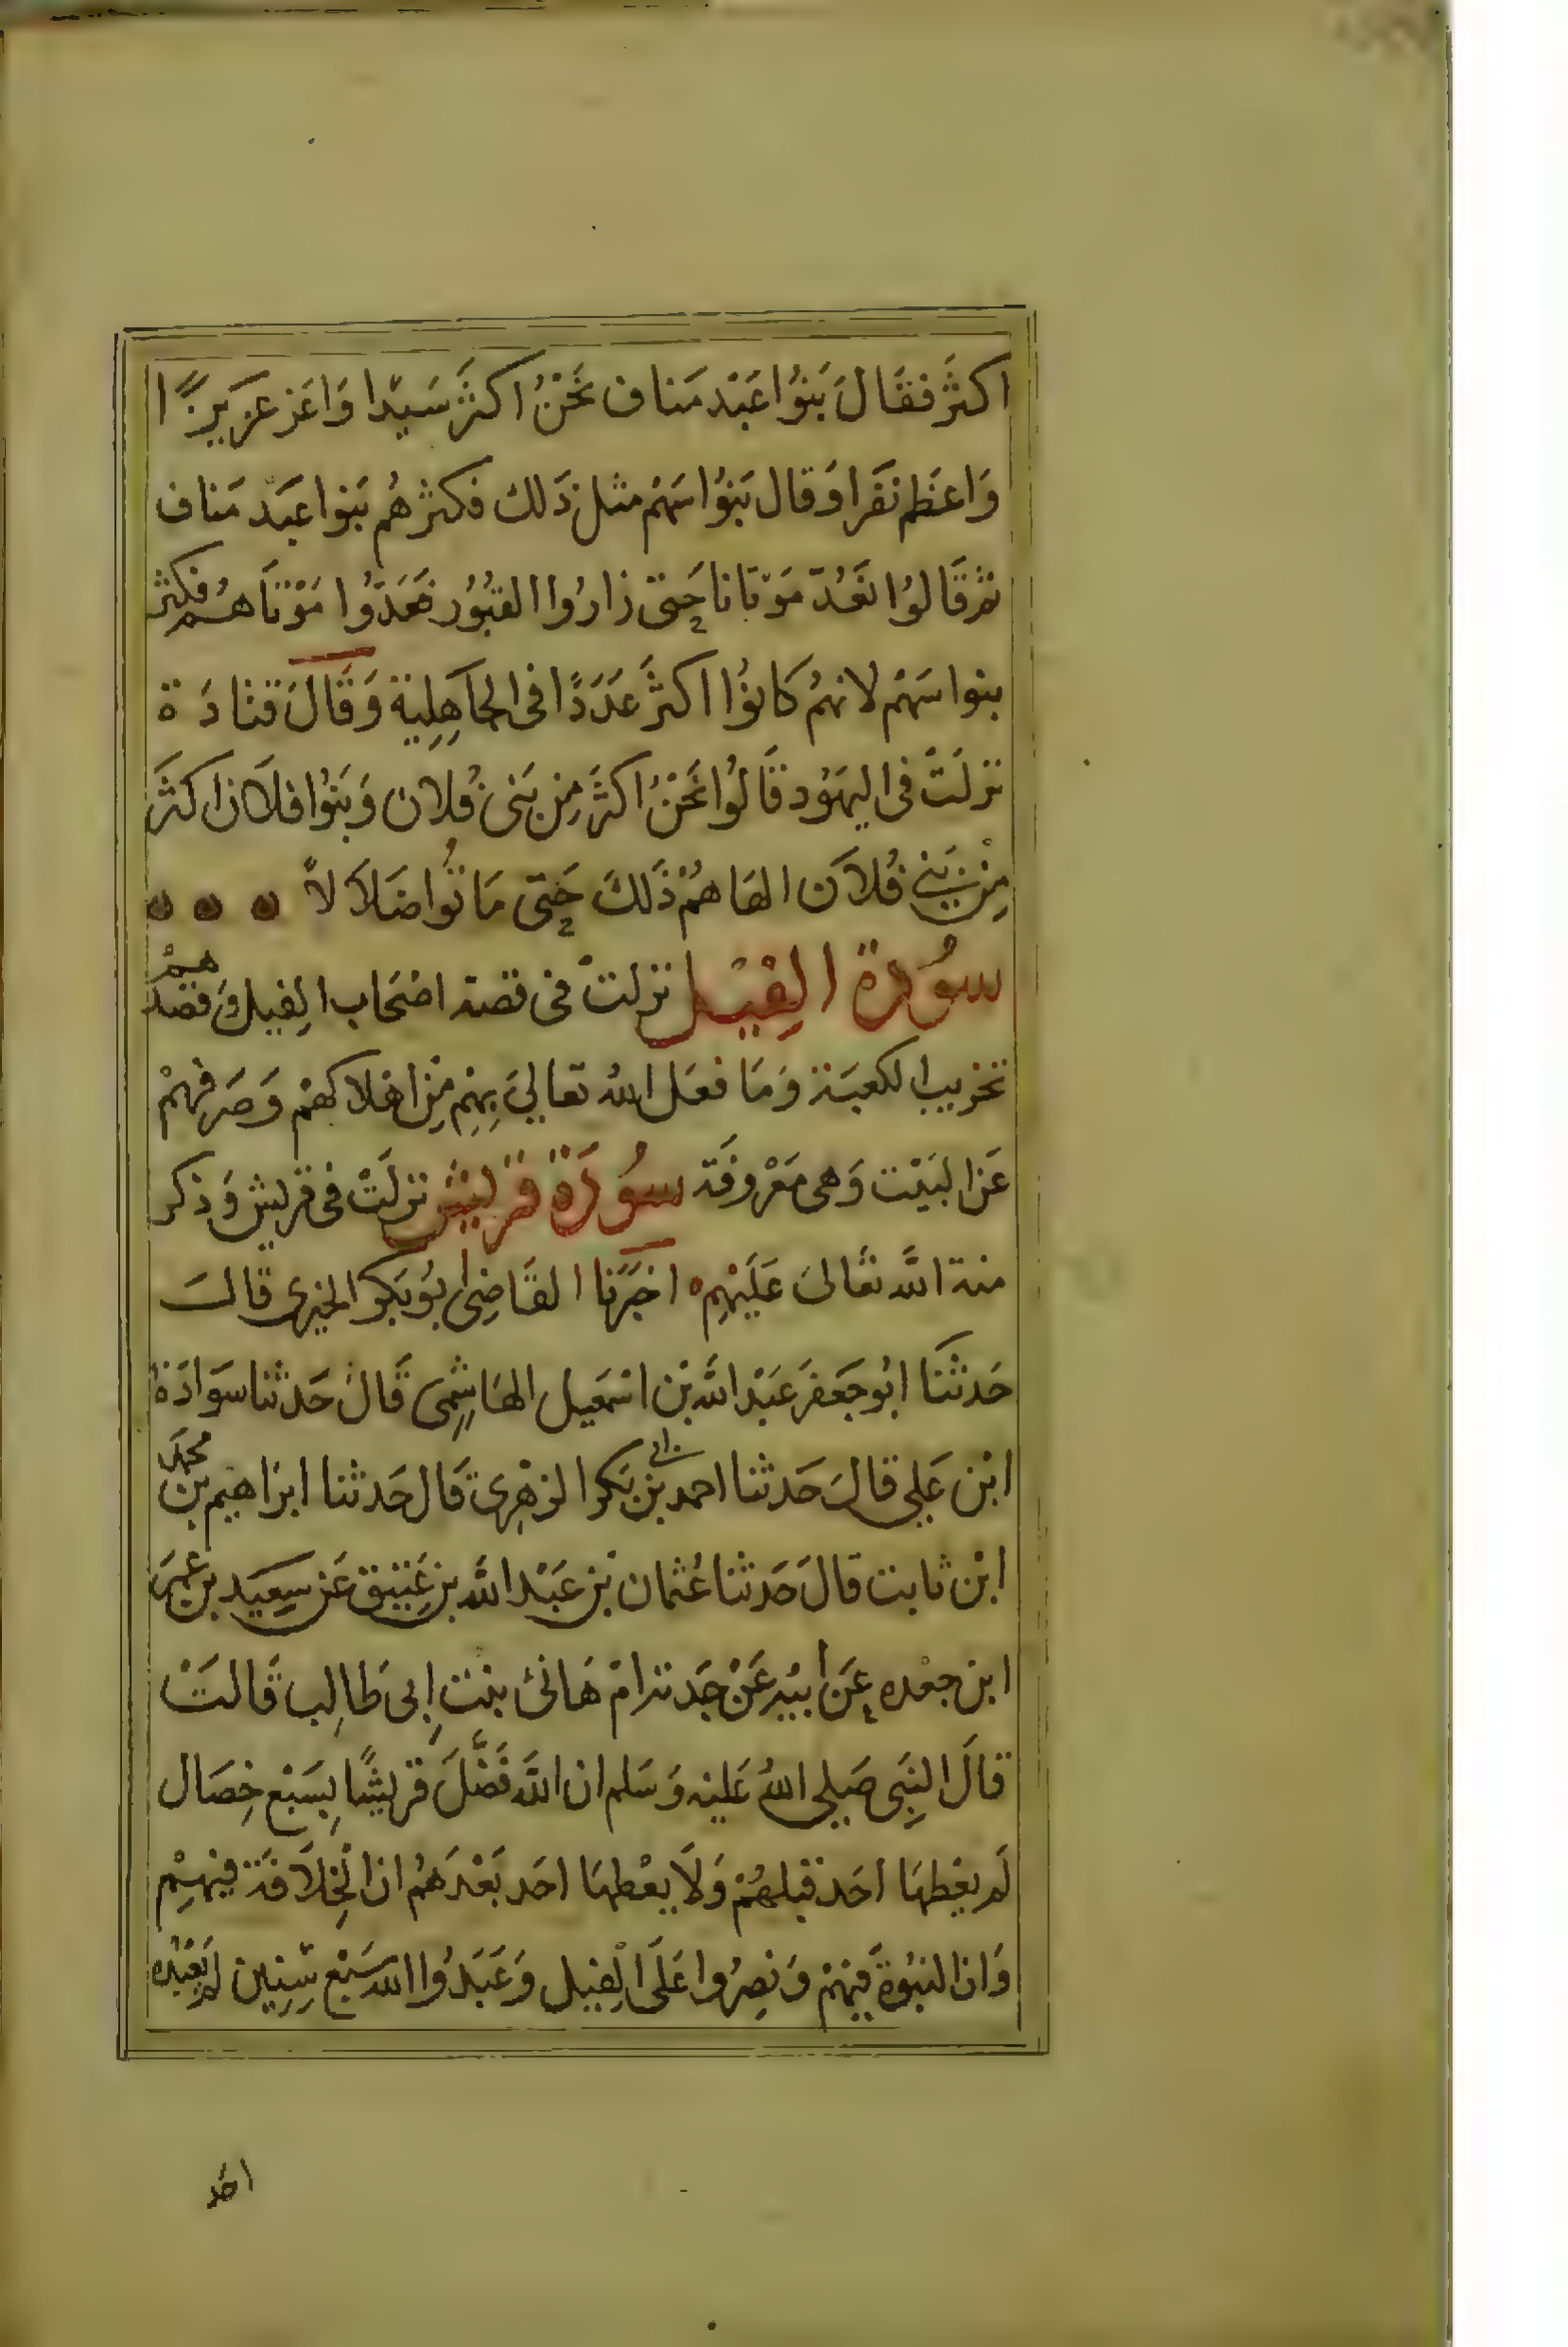 اكثَر فقَالَ بَنوُا عَبْد مَناف نحَنُ اكثَر سَيدًا وَاعَز عزيزًا
وَاعظَم نَفَرا وَقال بَنوُا سَهْم مثل ذَلك فكثرَهُم بَنوا عَبَد مَناف
ثم قَالوُا نَعُدّ مَوْتانا حَتى زارُوا القبُوُر فَعَدّوُا مَوْتَاهُم فكثر
بنوا سَهْم لانهمُ كَانوُا اكثَر عَدَدًا فى الجاَهِلِية وَقَالَ قتادَة
نزلَتْ فى اليهَوُد قَالوُا نحَنُ اكثَر مِن بَنى فُلان وَبَنوُا فلاَن اكثَر
مِنْ بَني فُلاَن الهَاهُمْ ذَلكَ حَتى مَاتُوا ضَلاَلاً
سوُرة الفِيْل نزلتْ فى قصة اصْحَاب الِفيل وَقصْدهمْ
تخزيب الكعبَة وَمَا فعَل اللهُ تعاليَ بهِمِ مِن اهْلاكهمْ وَصَرفهمْ
عَن البَيْت وَهى مَعْروفَة سوُرَة قريش نزلَتْ فى قريش وَذكر
منة اللَّه تعَالىَ عَلَيْهِم اخبَرَنا القاَضِى ابوُ بَكر الحيرى قالَ
حَدثنَا ابُو جَعفَر عَبْد اللَّه بْن اسْمَعيل الهَاشِمِى قَالَ حَدثنا سَوادَة
ابْن عَلي قالَ حَدثنا احمد بن ابى بَكر الزهْرِى قَال حَدثنا ابرَاهيم بن محمد
ابْن ثابت قالَ حَدثنا عُثمان بْن عَبْد اللَّه بن عَتيق عَن سَعِيد بن عمرَ
ابن جعْده عَن أبيْه عَنْ جَدته امْ هَانئ بنْت اِبى طَالِب قَالتَْ
قالَ النبَِى صَلي اللهُ عَليْه وَسَلم ان اللَّه فَضَّلَ قريشًا بِسَبْع خِصَال
لَم يعْطهَا احَد قبلهُمْ وَلاَ يعْطهَا احَد بَعْدَهُمْ ان الْخِلاَفَة فيهِمْ
وَان النبُوُة فيَهمْ وَنصِرُوا عَلىَ الْفِيل وَعَبَدوُا اللَّه سَبْع سِّنِين لَم يَعْبُدْه
احَد